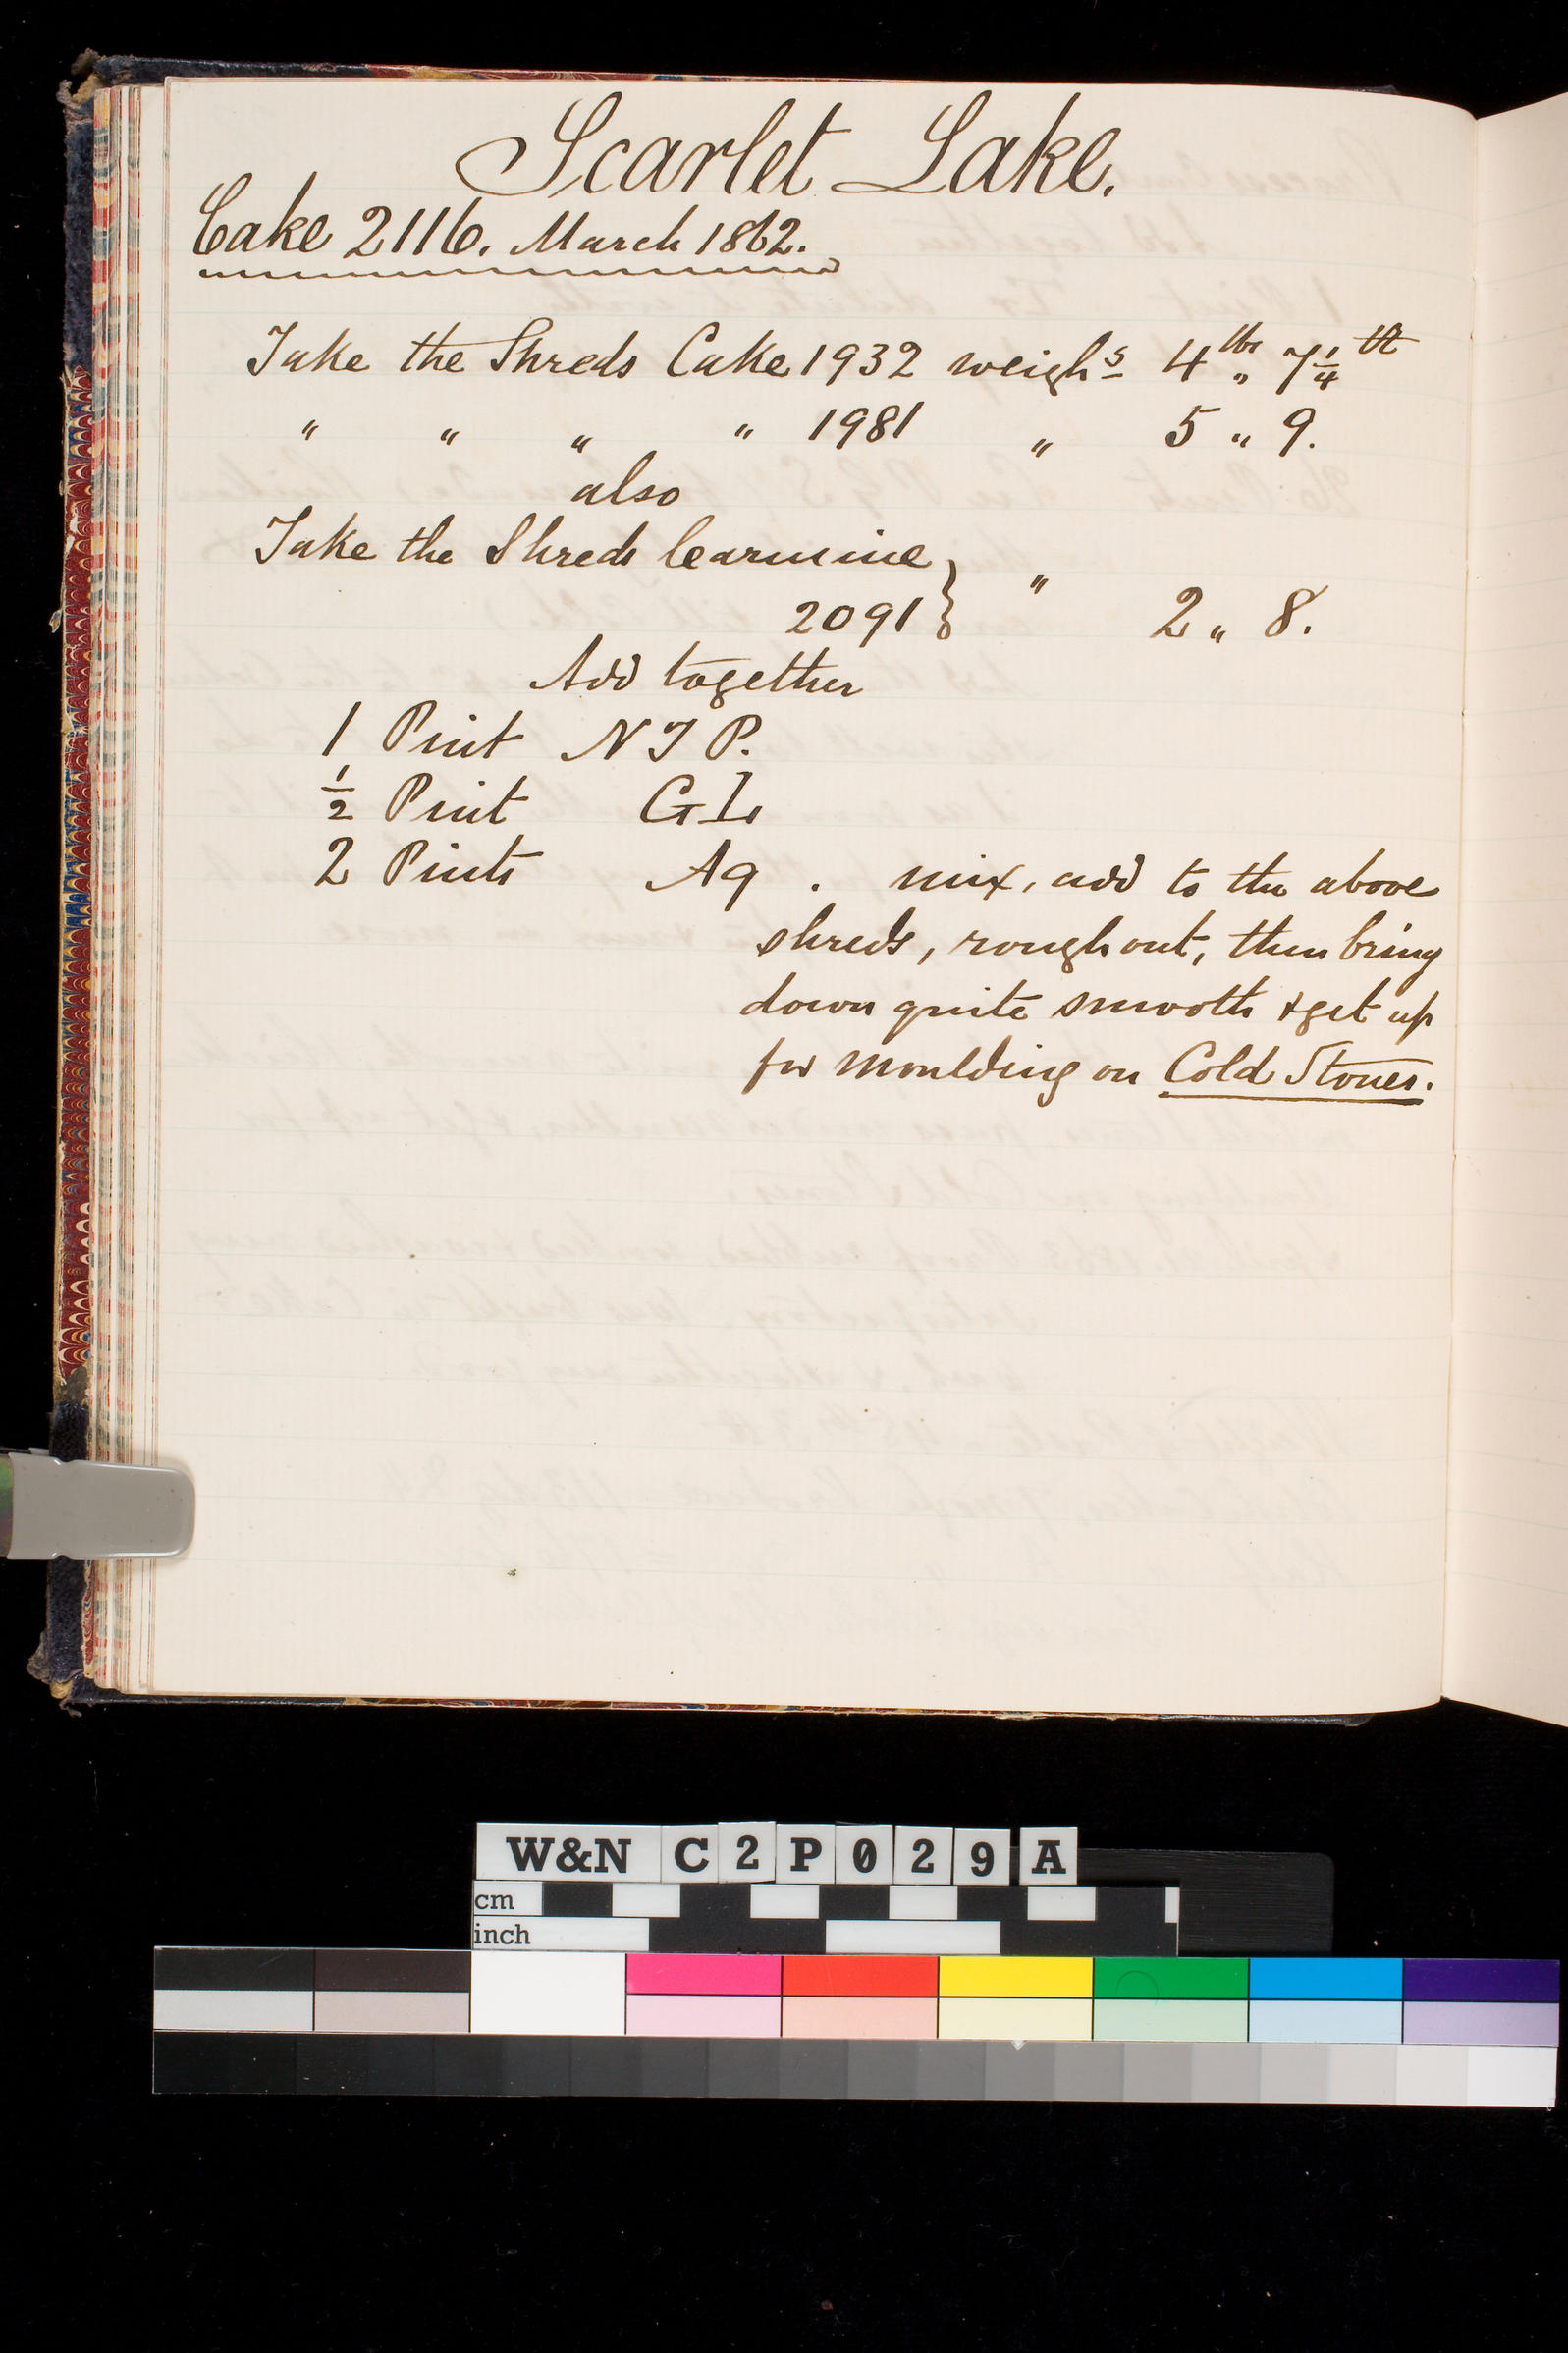 Scarlet Lake.
Cake 2116. March 1862.
Take the Shreds Cake 1932 weighs 4 lbs „ 7 1/4 th
" " " " 1981 " 5 „ 9.
also
Take the Shreds Carmine } "
2091 } 2 „ 8.
Add together
1 Pint N T P.
1/2 Pint G L
2 Pints Aq . mix, add to the above
shreds, rough out, then bring
down quite smooth & get up
for moulding on Cold Stones.
W&N C2P029A
cm
inch